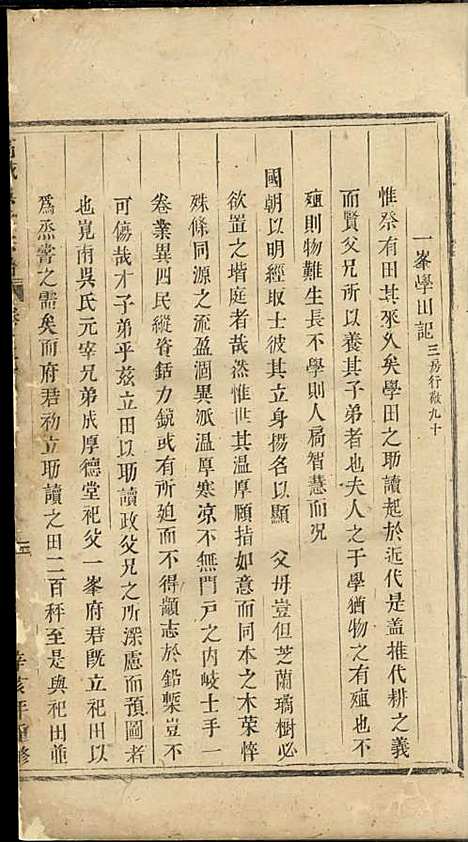 一峯學田記 三房行敬九十
惟祭有田其來久矣學田之助讀起於近代是盖推代耕之義
而賢父兄所以養其子弟者也夫人之于學猶物之有殖也不
殖則物難生長不學則人局智慧而况
國朝以明經取士彼其立身揚名以顯 父母豈但芝蘭璚樹必
欲置之堦庭者哉然惟世其温厚頤指如意而同本之木荣悴
殊條同源之流盈涸異派温厚寒凉不無門户之内岐士手一
卷業異四民縱資銛力鏡或有所迫而不得顓志於鉛槧豈不
可傷哉才子弟乎兹立田以助讀政父兄之所深慮而預圖者
也嵬南吳氏元宰兄弟成厚德堂祀父一峯府君既立祀田以
爲烝嘗之需矣而府君初立助讀之田二百秤至是與祀田並
辛亥年重修